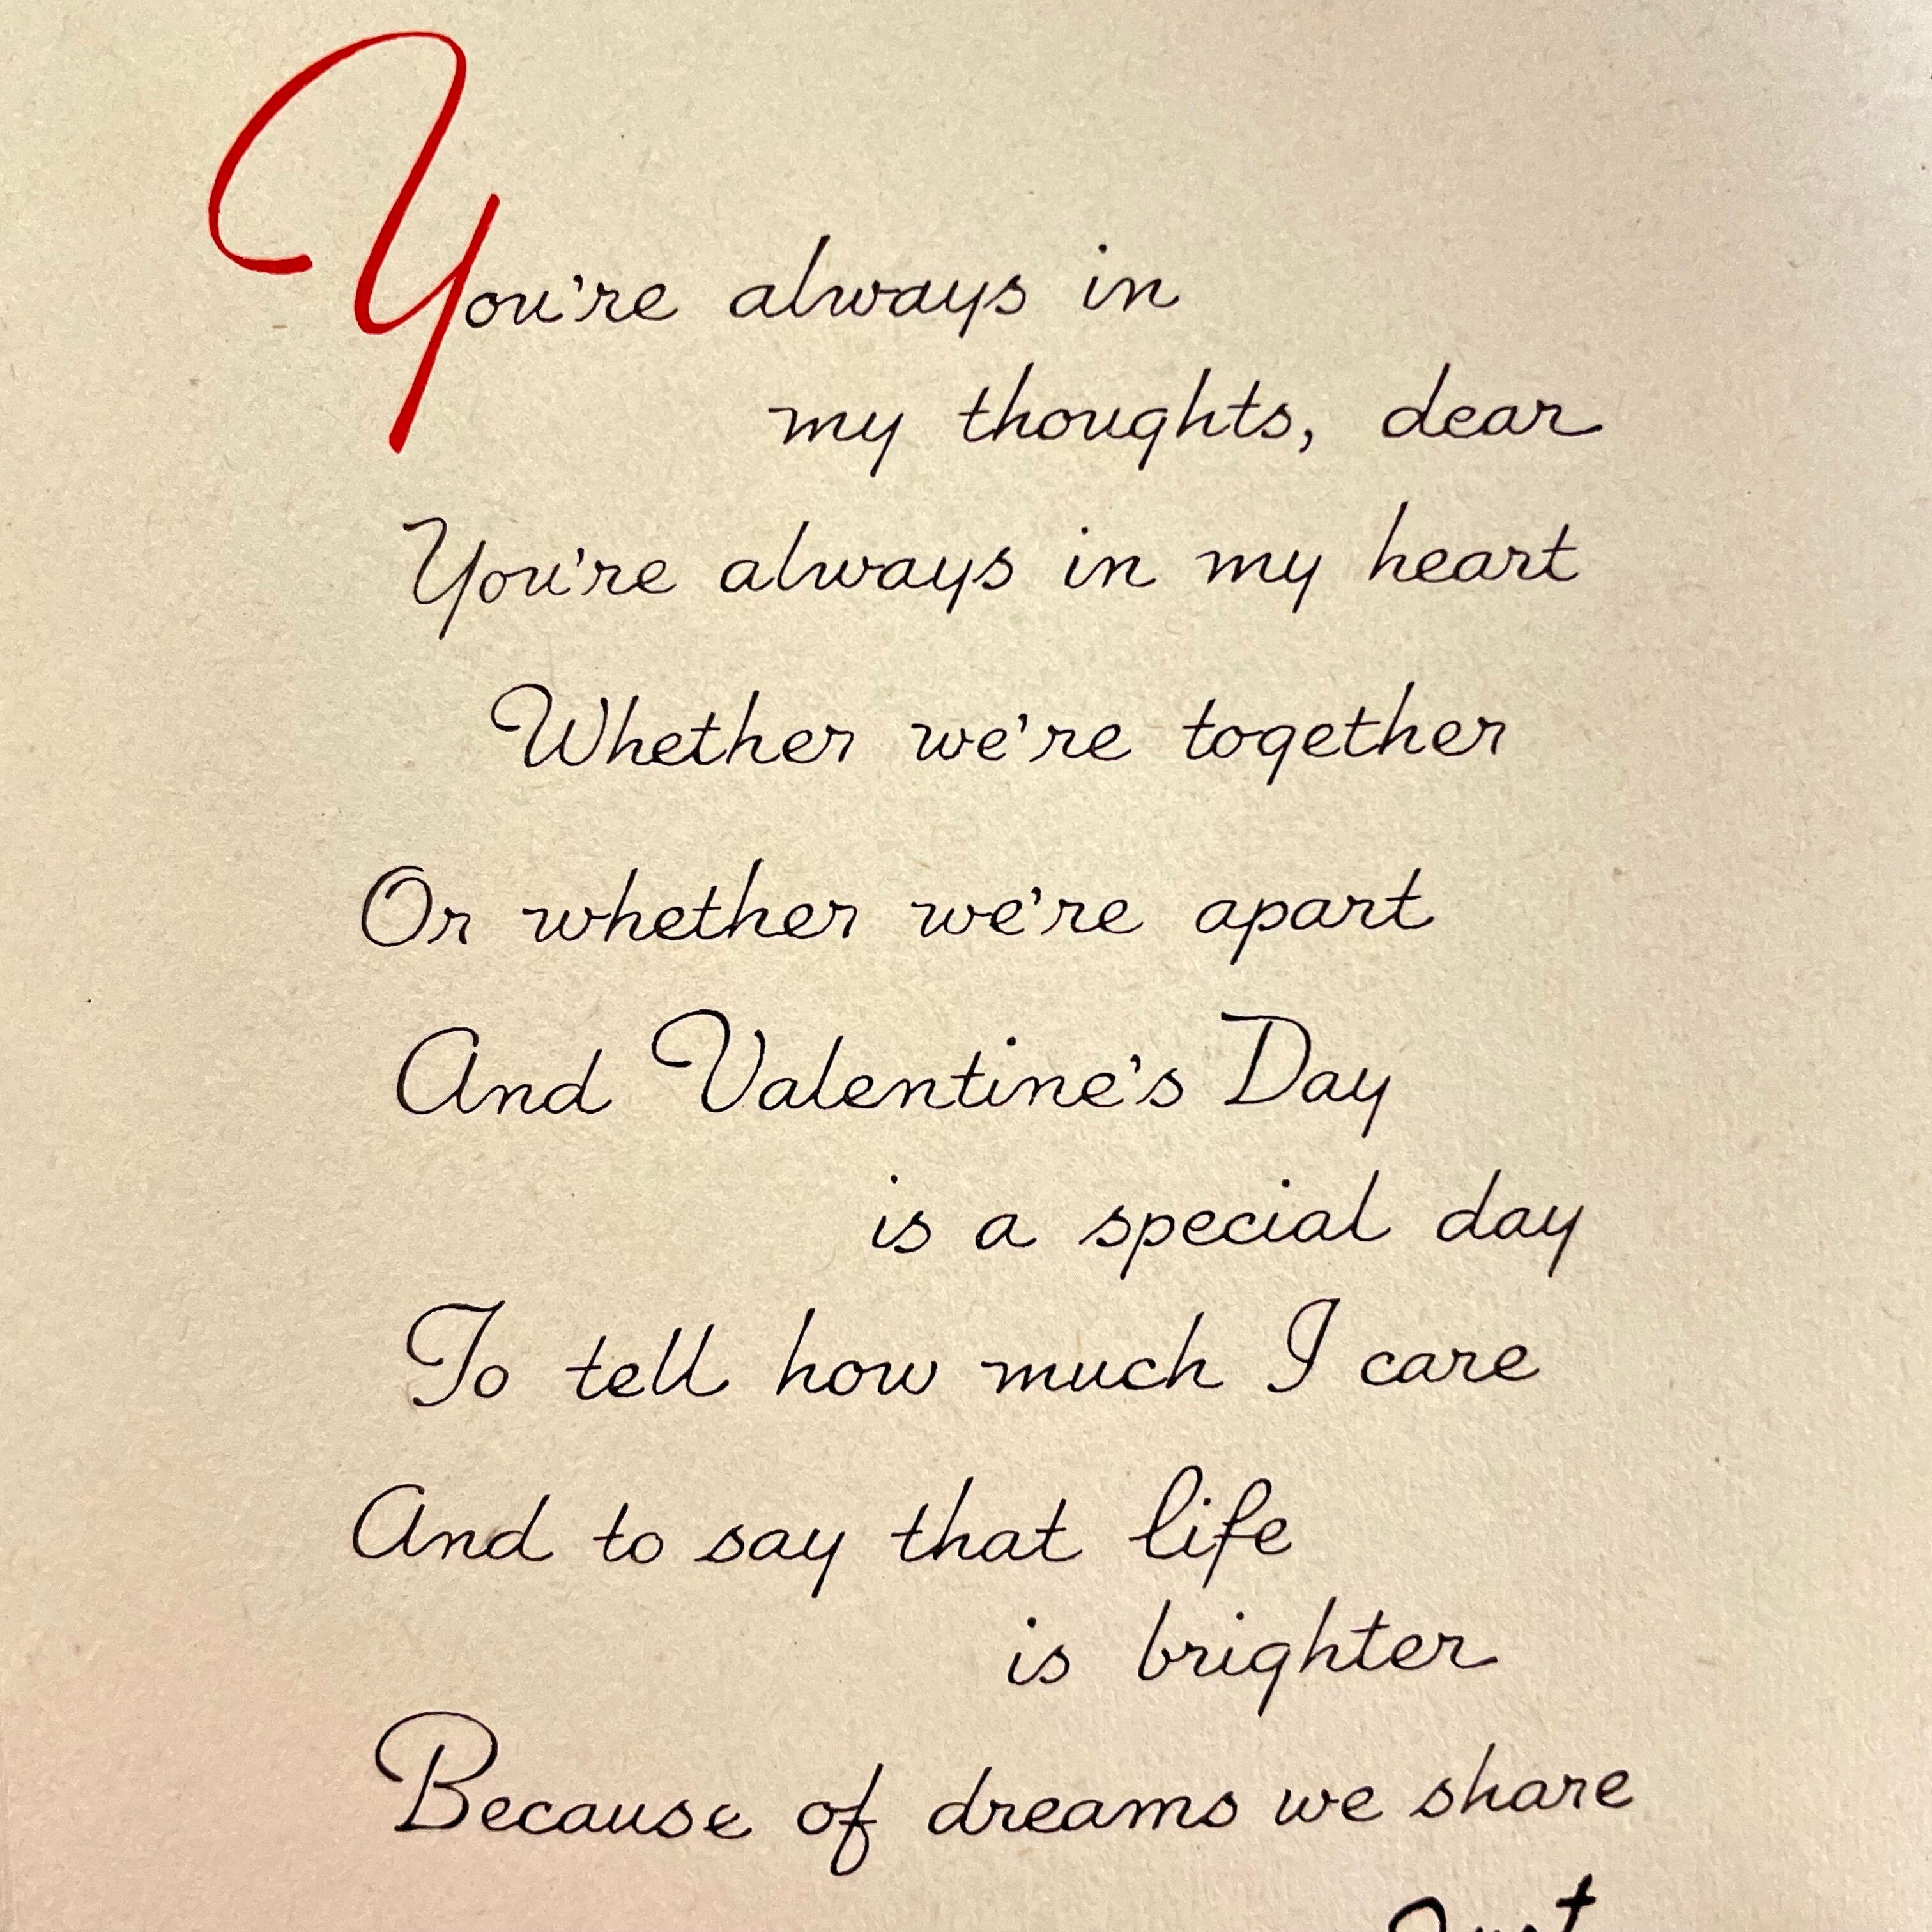 You're always in
my thoughts, dear
You're always in my heart
Whether we're together
Or whether we're apart
And Valentine's Day
is a special day
To tell how much I care
And to say that life
is brighter
Because of dreams we share